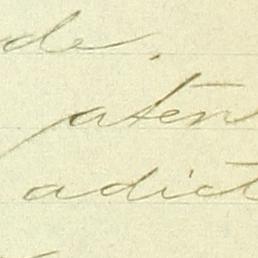 de.
aten
adict